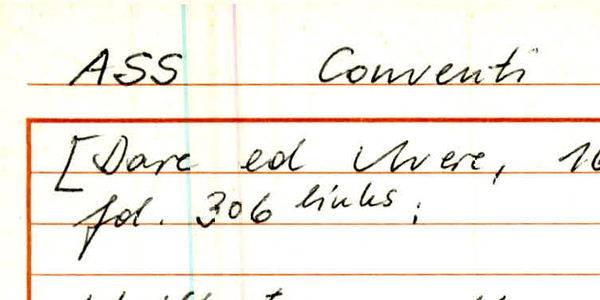 ASS Conventi
[Dare ed Avere, 16
fol. 306 links;